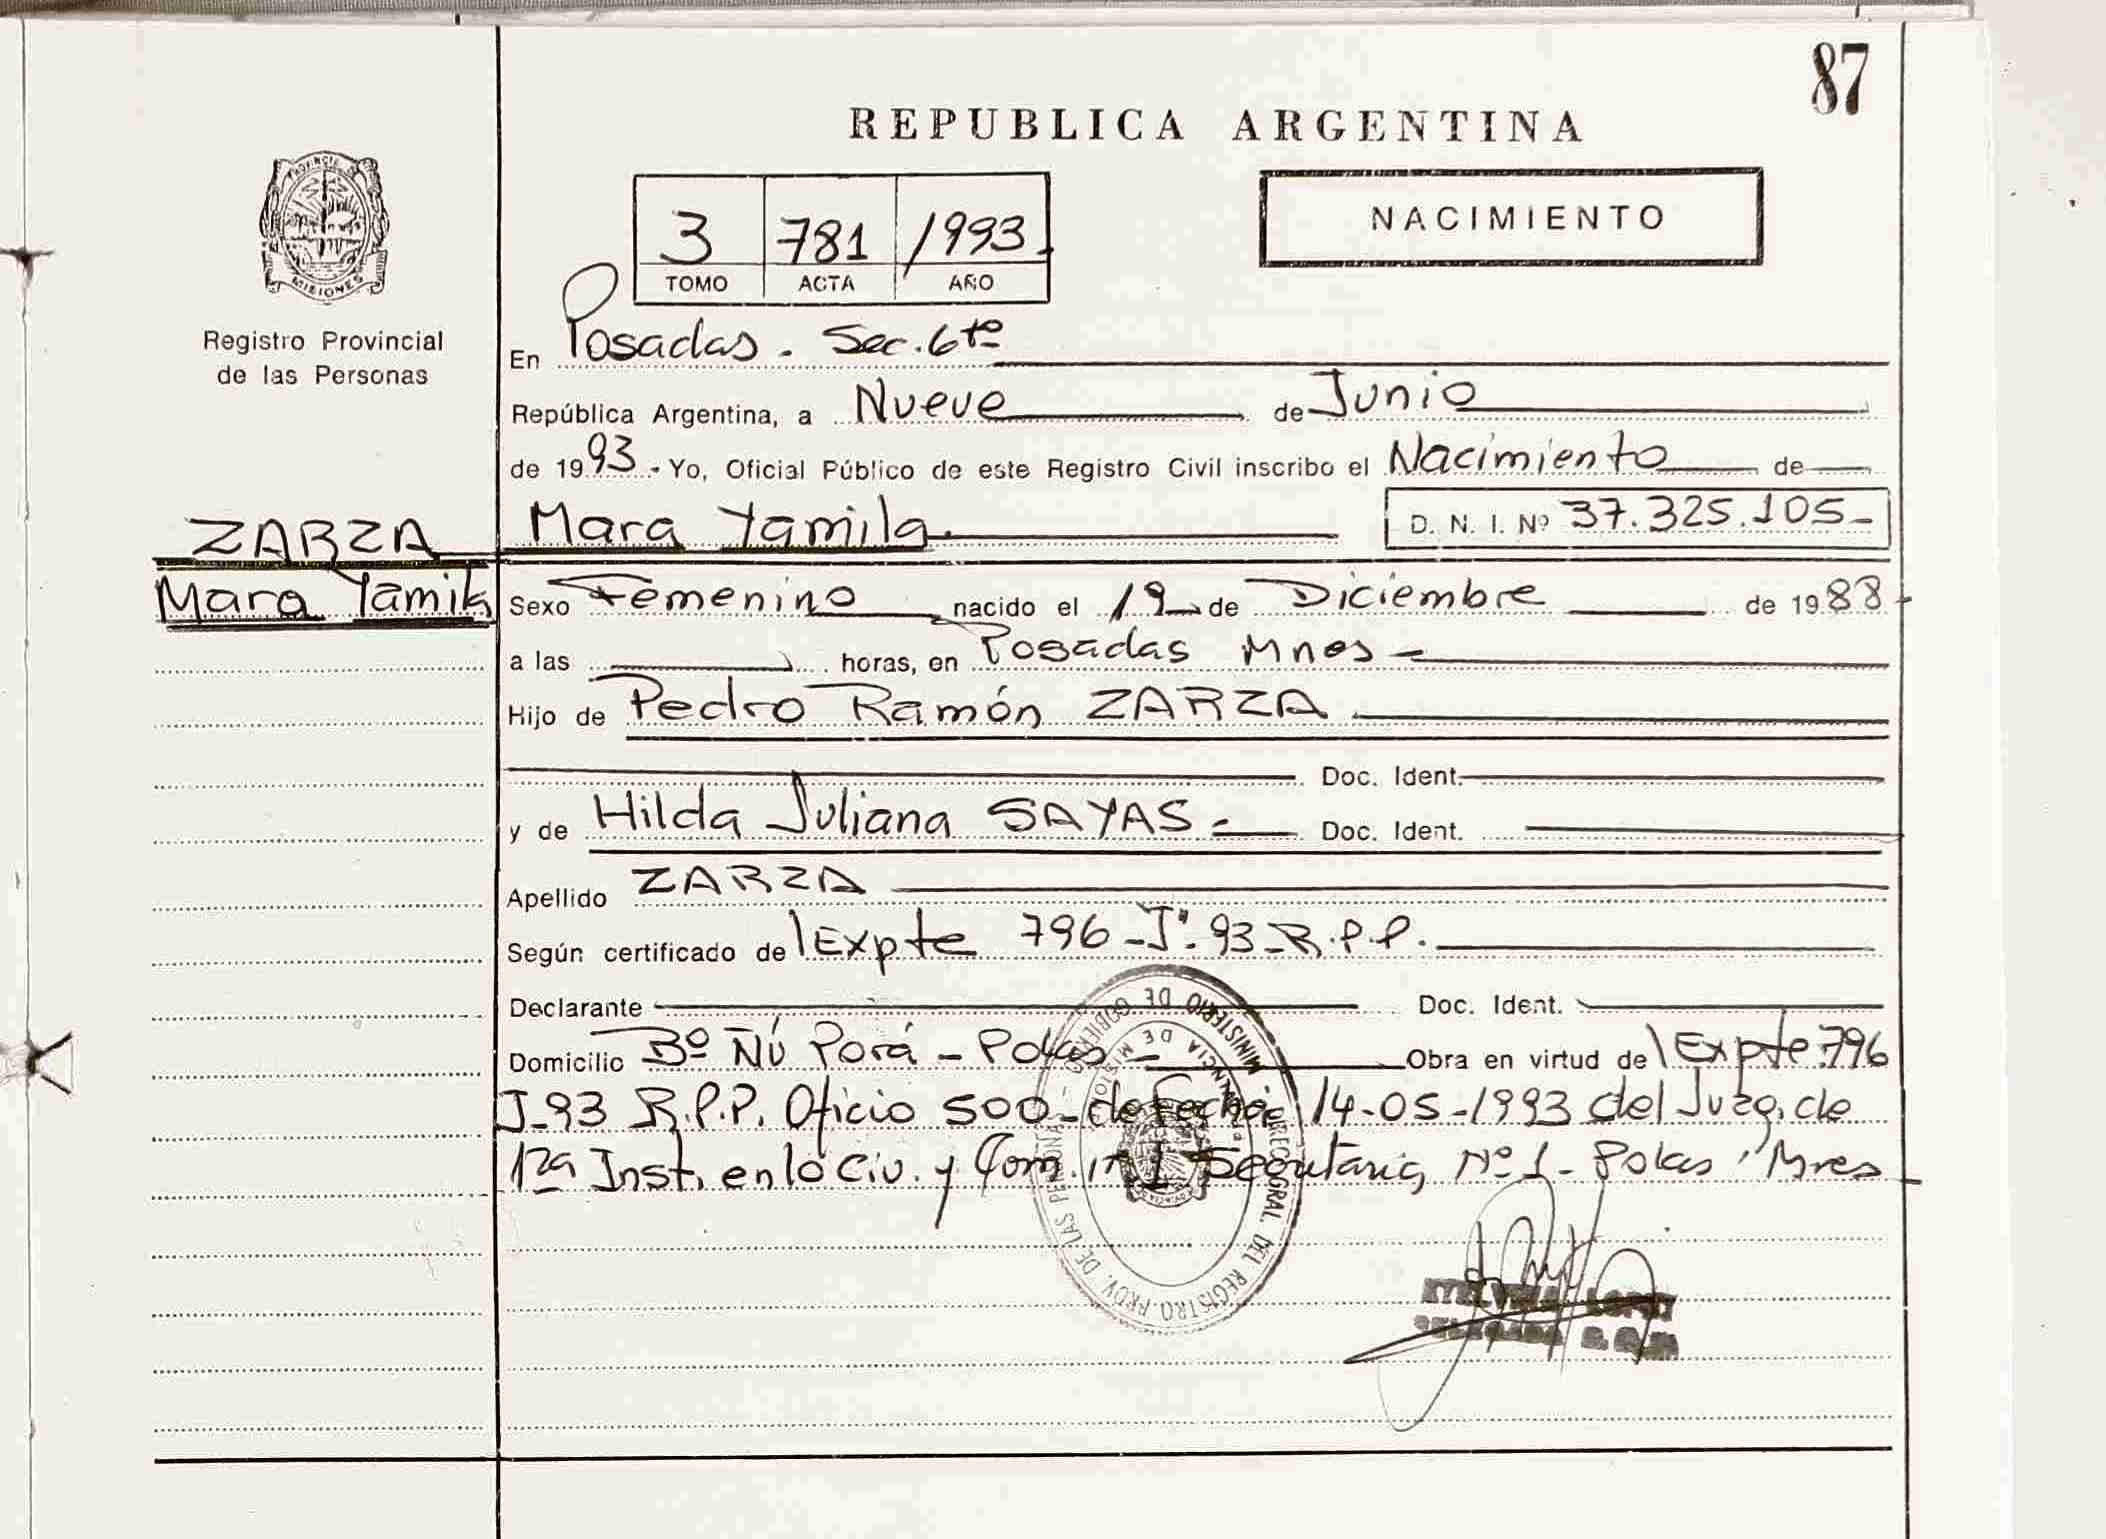 87
REPUBLICA ARGENTINA
PROVINCIA DE
MISIONES
Registro Provincial
de las Personas
3 781 1993
TOMO ACTA AÑO
NACIMIENTO
En Posadas. Sec. 6ta
República Argentina, a Nueve de Junio
de 1993.- Yo, Oficial Público de este Registro Civil inscribo el Nacimiento de
ZARZA
Mara Yamila
Mara Yamila. D. N. I. Nº 37.325.105-
Sexo Femenino nacido el 19 de Diciembre de 1988
a las horas, en Posadas Mnes-
Hijo de Pedro Ramón ZARZA
Doc. Ident.
y de Hilda Juliana SAYAS.- Doc. Ident.
Apellido ZARZA
Según certificado de Expte 796-J.93-R.P.P.
Declarante Doc. Ident.
Domicilio Bº Ñú Porá - Pdas - Obra en virtud de Expte.796
J-93 R.P.P. Oficio 500-de Fecha 14-05-1993 del Juzg. de
1ra Inst. en lo Civ. y Com. Secretaria Nº 1- Pdas, Mnes
MINISTERIO DE GOBIERNO -
PROVINCIA DE MISIONES
DIREC. GRAL. DEL REGISTRO PROV. DE LAS PERSONAS